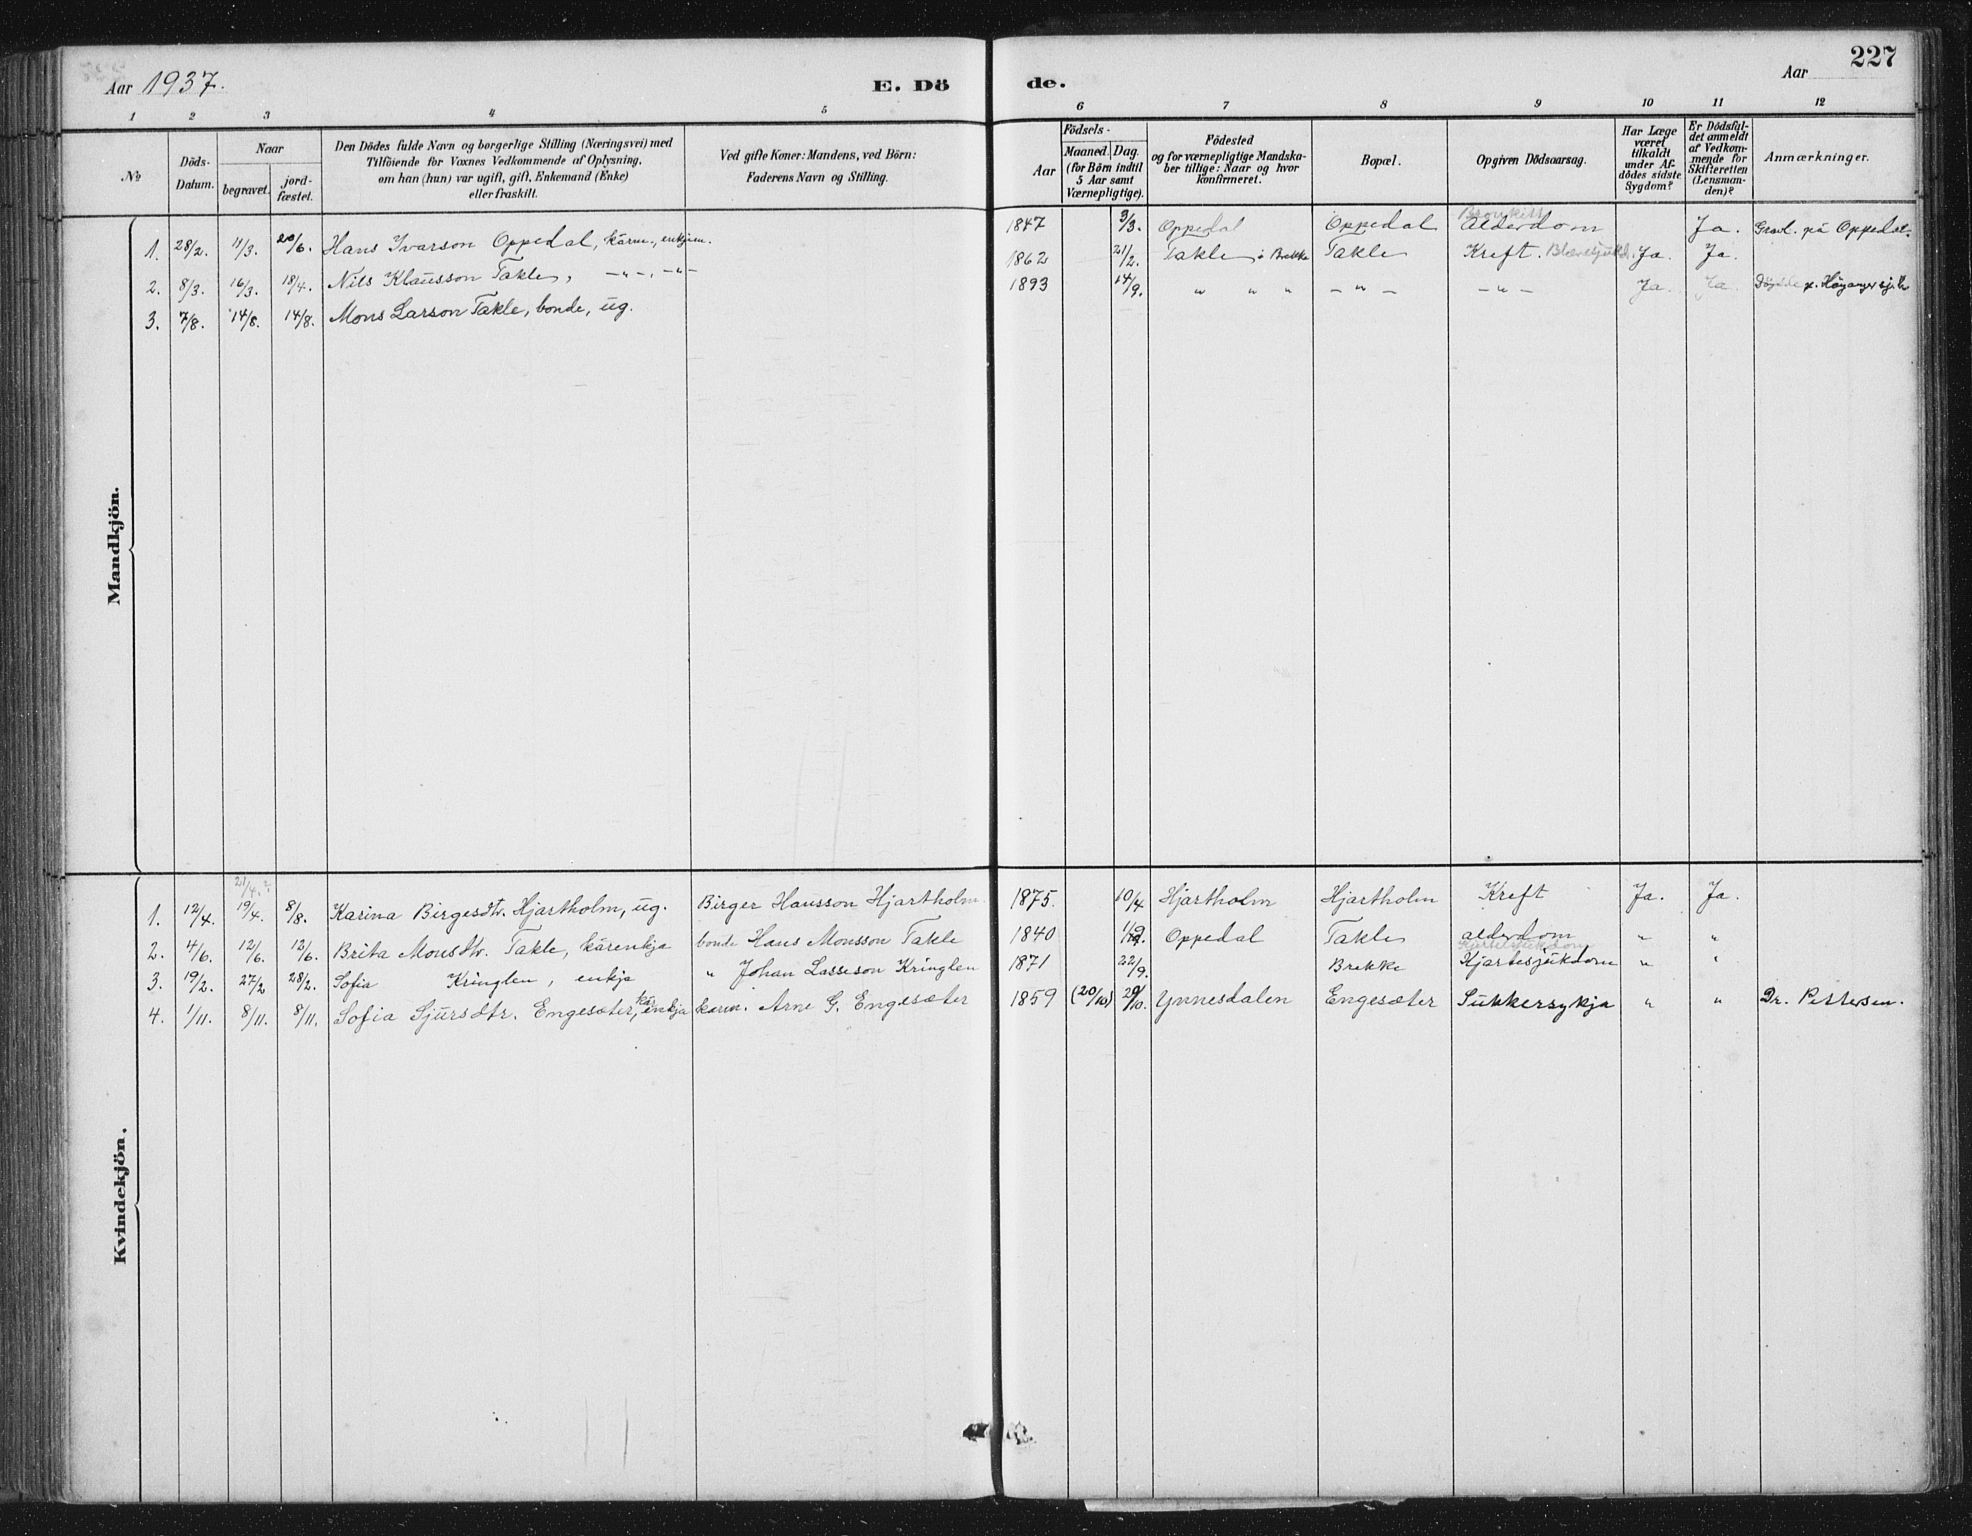 Aar 1937. E. Dö de. Aar 227
1 2 3 4 5 6 7 8 9 10 11 12
No
Döds-Datum.
Naar
begravet.
jord-fæstet.
Den Dödes fulde Navn og borgerlige Stilling (Næringsvei) med
Tilföiende for Voxnes Vedkommende af Oplysning,
om han (hun) var ugift, gift, Enkemand (Enke)
eller fraskilt.
Ved gifte Koner: Mandens, ved Börn:
Faderens Navn og Stilling.
Aar
Födsels-
Maaned. Dag.
(for Börn indtil
5 Aar samt
Værnepligtige).
Födested
og for værnepligtige Mandska-
ber tillige: Naar og hvor
konfirmeret.
Bopæl.
Opgiven Dödsaarsag.
Har Læge
været
tilkaldt
under Af-
dödes sidste
Sygdom?
Er Dödsfal-
det anmeldt
af Vedkom-
mende for
Skifteretten
(Lensman-
den)?
Anmærkninger.
Mandkjön.
1. 28/2. 11/3. 20/6. Hans Ivarson Oppedal, kårm., enkjem. 1847 3/3. Oppedal Oppedal Bronkitt Alderdom Ja. Gravl. på Oppedal.
2. 8/3. 16/3. 18/4. Nils Klausson Takle, -"-, -"- 1862 21/2. Takle i Brekke Takle Kreft. Blæresjukd. Ja. Ja.
3. 7/8. 14/8. 14/8. Mons Larson Takle, bonde, ug. 1893 14/9. " " " -"- -"- Ja. Ja. Döydde p. Höyanger sj.h.
Kvindekjön.
21/4.?
1. 12/4. 19/4. 8/8. Karina Birgesdtr. Hjartholm, ug. Birger Hansson Hjartholm 1875. 10/4 Hjartholm Hjartholm Kreft Ja. Ja.
2. 4/6. 12/6. 12/6. Brita Monsdtr. Takle, kårenkja bonde Hans Monsson Takle 1840 Oppedal Takle alderdom " "
3. 19/2. 27/2 28/2. Sofia Kringlen, enkja " Johan Lasseson Kringlen 1871 22/9. Brekke Hjartesjukdom " "
4. 1/11. 8/11. 8/11. Sofia Sjursdtr. Engesæter, kårenkja kårm. Arne G. Engesæter 1859 (20/10) 20/10. Ynnesdalen Engesæter Sukkersykja " " Dr. Pettersen.